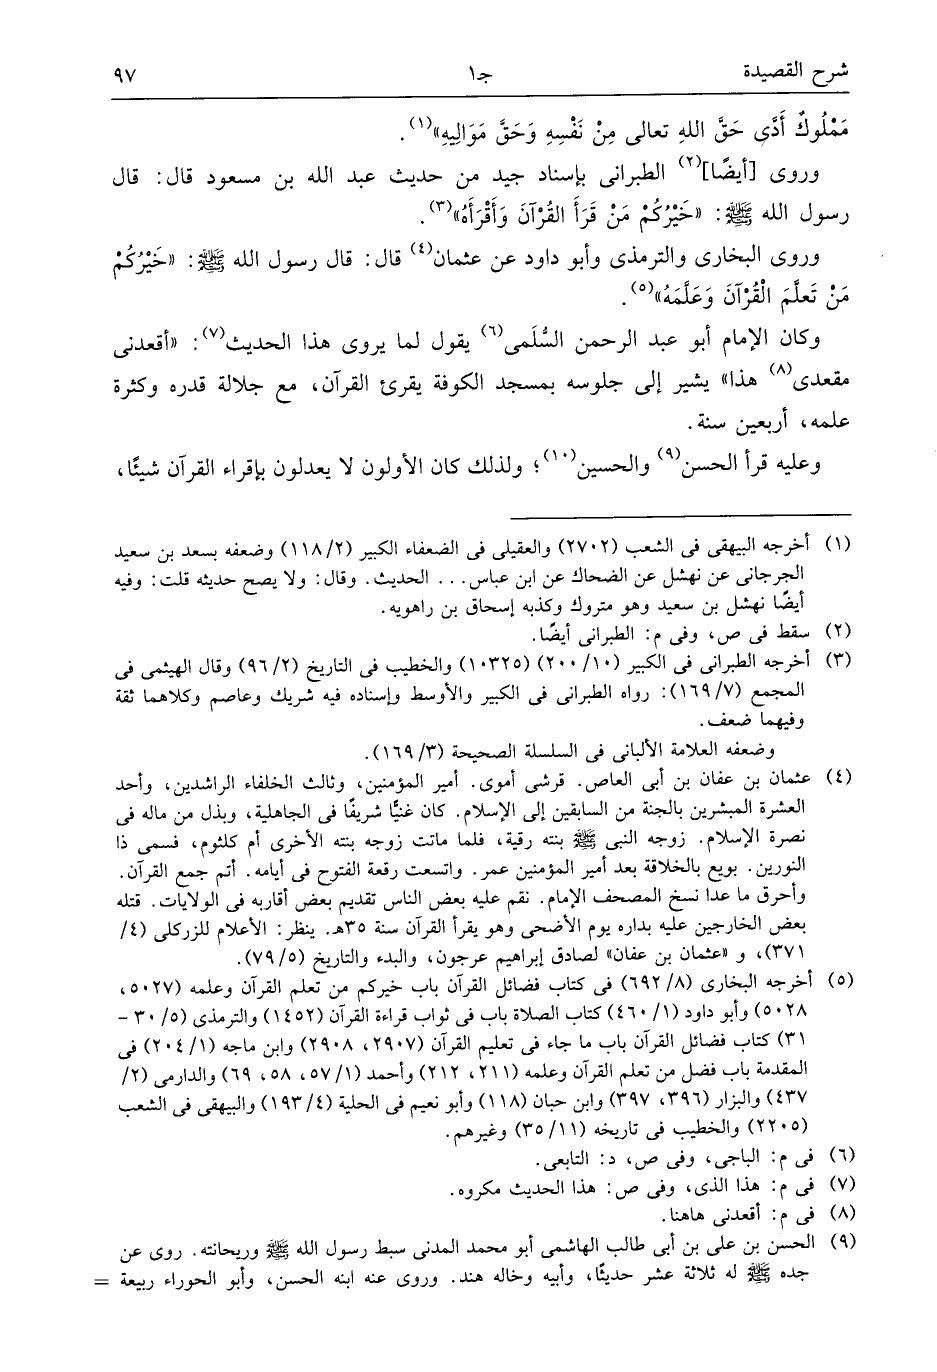 شرح القصيدة جـ١ ٩٧
مَمْلُوكٌ أَدَّى حَقَّ اللهِ تعالى مِنْ نَفْسِهِ وَحَقَّ مَوَالِيهِ»(١).
وروى [أيضًا](٢) الطبرانى بإسناد جيد من حديث عبد الله بن مسعود قال: قال
رسول الله ﷺ: «خَيْرُكُمْ مَنْ قَرَأَ القُرْآنَ وَأَقْرَأَهُ»(٣).
وروى البخارى والترمذى وأبو داود عن عثمان(٤) قال: قال رسول الله ﷺ: «خَيْرُكُمْ
مَنْ تَعلَّمَ الْقُرْآنَ وَعَلَّمَهُ»(٥).
وكان الإمام أبو عبد الرحمن السُّلَمى(٦) يقول لما يروى هذا الحديث(٧): «أقعدنى
مقعدى(٨) هذا» يشير إلى جلوسه بمسجد الكوفة يقرئ القرآن، مع جلالة قدره وكثرة
علمه، أربعين سنة.
وعليه قرأ الحسن(٩) والحسين(١٠)؛ ولذلك كان الأولون لا يعدلون بإقراء القرآن شيئًا،
(١) أخرجه البيهقى فى الشعب (٢٧٠٢) والعقيلى فى الضعفاء الكبير (٢/ ١١٨) وضعفه بسعد بن سعيد
الجرجانى عن نهشل عن الضحاك عن ابن عباس... الحديث. وقال: ولا يصح حديثه قلت: وفيه
أيضًا نهشل بن سعيد وهو متروك وكذبه إسحاق بن راهويه.
(٢) سقط فى ص، وفى م: الطبرانى أيضًا.
(٣) أخرجه الطبرانى فى الكبير (١٠/ ٢٠٠) (١٠٣٢٥) والخطيب فى التاريخ (٢/ ٩٦) وقال الهيثمى فى
المجمع (٧/ ١٦٩): رواه الطبرانى فى الكبير والأوسط وإسناده فيه شريك وعاصم وكلاهما ثقة
وفيهما ضعف.
وضعفه العلامة الألبانى فى السلسلة الصحيحة (٣/ ١٦٩).
(٤) عثمان بن عفان بن أبى العاص. قرشى أموى. أمير المؤمنين، وثالث الخلفاء الراشدين، وأحد
العشرة المبشرين بالجنة من السابقين إلى الإسلام. كان غنيًّا شريفًا فى الجاهلية، وبذل من ماله فى
نصرة الإسلام. زوجه النبى ﷺ بنته رقية، فلما ماتت زوجه بنته الأخرى أم كلثوم، فسمى ذا
النورين. بويع بالخلافة بعد أمير المؤمنين عمر. واتسعت رقعة الفتوح فى أيامه. أتم جمع القرآن.
وأحرق ما عدا نسخ المصحف الإمام. نقم عليه بعض الناس تقديم بعض أقاربه فى الولايات. قتله
بعض الخارجين عليه بداره يوم الأضحى وهو يقرأ القرآن سنة ٣٥هـ. ينظر: الأعلام للزركلى (٤/
٣٧١)، و «عثمان بن عفان» لصادق إبراهيم عرجون، والبدء والتاريخ (٥/ ٧٩).
(٥) أخرجه البخارى (٨/ ٦٩٢) فى كتاب فضائل القرآن باب خيركم من تعلم القرآن وعلمه (٥٠٢٧،
٥٠٢٨) وأبو داود (١/ ٤٦٠) كتاب الصلاة باب فى ثواب قراءة القرآن (١٤٥٢) والترمذى (٥/ ٣٠ -
٣١) كتاب فضائل القرآن باب ما جاء فى تعليم القرآن (٢٩٠٧، ٢٩٠٨) وابن ماجه (١/ ٢٠٤) فى
المقدمة باب فضل من تعلم القرآن وعلمه (٢١١، ٢١٢) وأحمد (١/ ٥٧، ٥٨، ٦٩) والدارمى (٢/
٤٣٧) والبزار (٣٩٦، ٣٩٧) وابن حبان (١١٨) وأبو نعيم فى الحلية (٤/ ١٩٣) والبيهقى فى الشعب
(٢٢٠٥) والخطيب فى تاريخه (١١/ ٣٥) وغيرهم.
(٦) فى م: الباجى، وفى ص، د: التابعى.
(٧) فى م: هذا الذى، وفى ص: هذا الحديث مكروه.
(٨) فى م: أقعدنى هاهنا.
(٩) الحسن بن على بن أبى طالب الهاشمى أبو محمد المدنى سبط رسول الله ﷺ وريحانته. روى عن
جده ﷺ له ثلاثة عشر حديثًا، وأبيه وخاله هند. وروى عنه ابنه الحسن، وأبو الحوراء ربيعة =